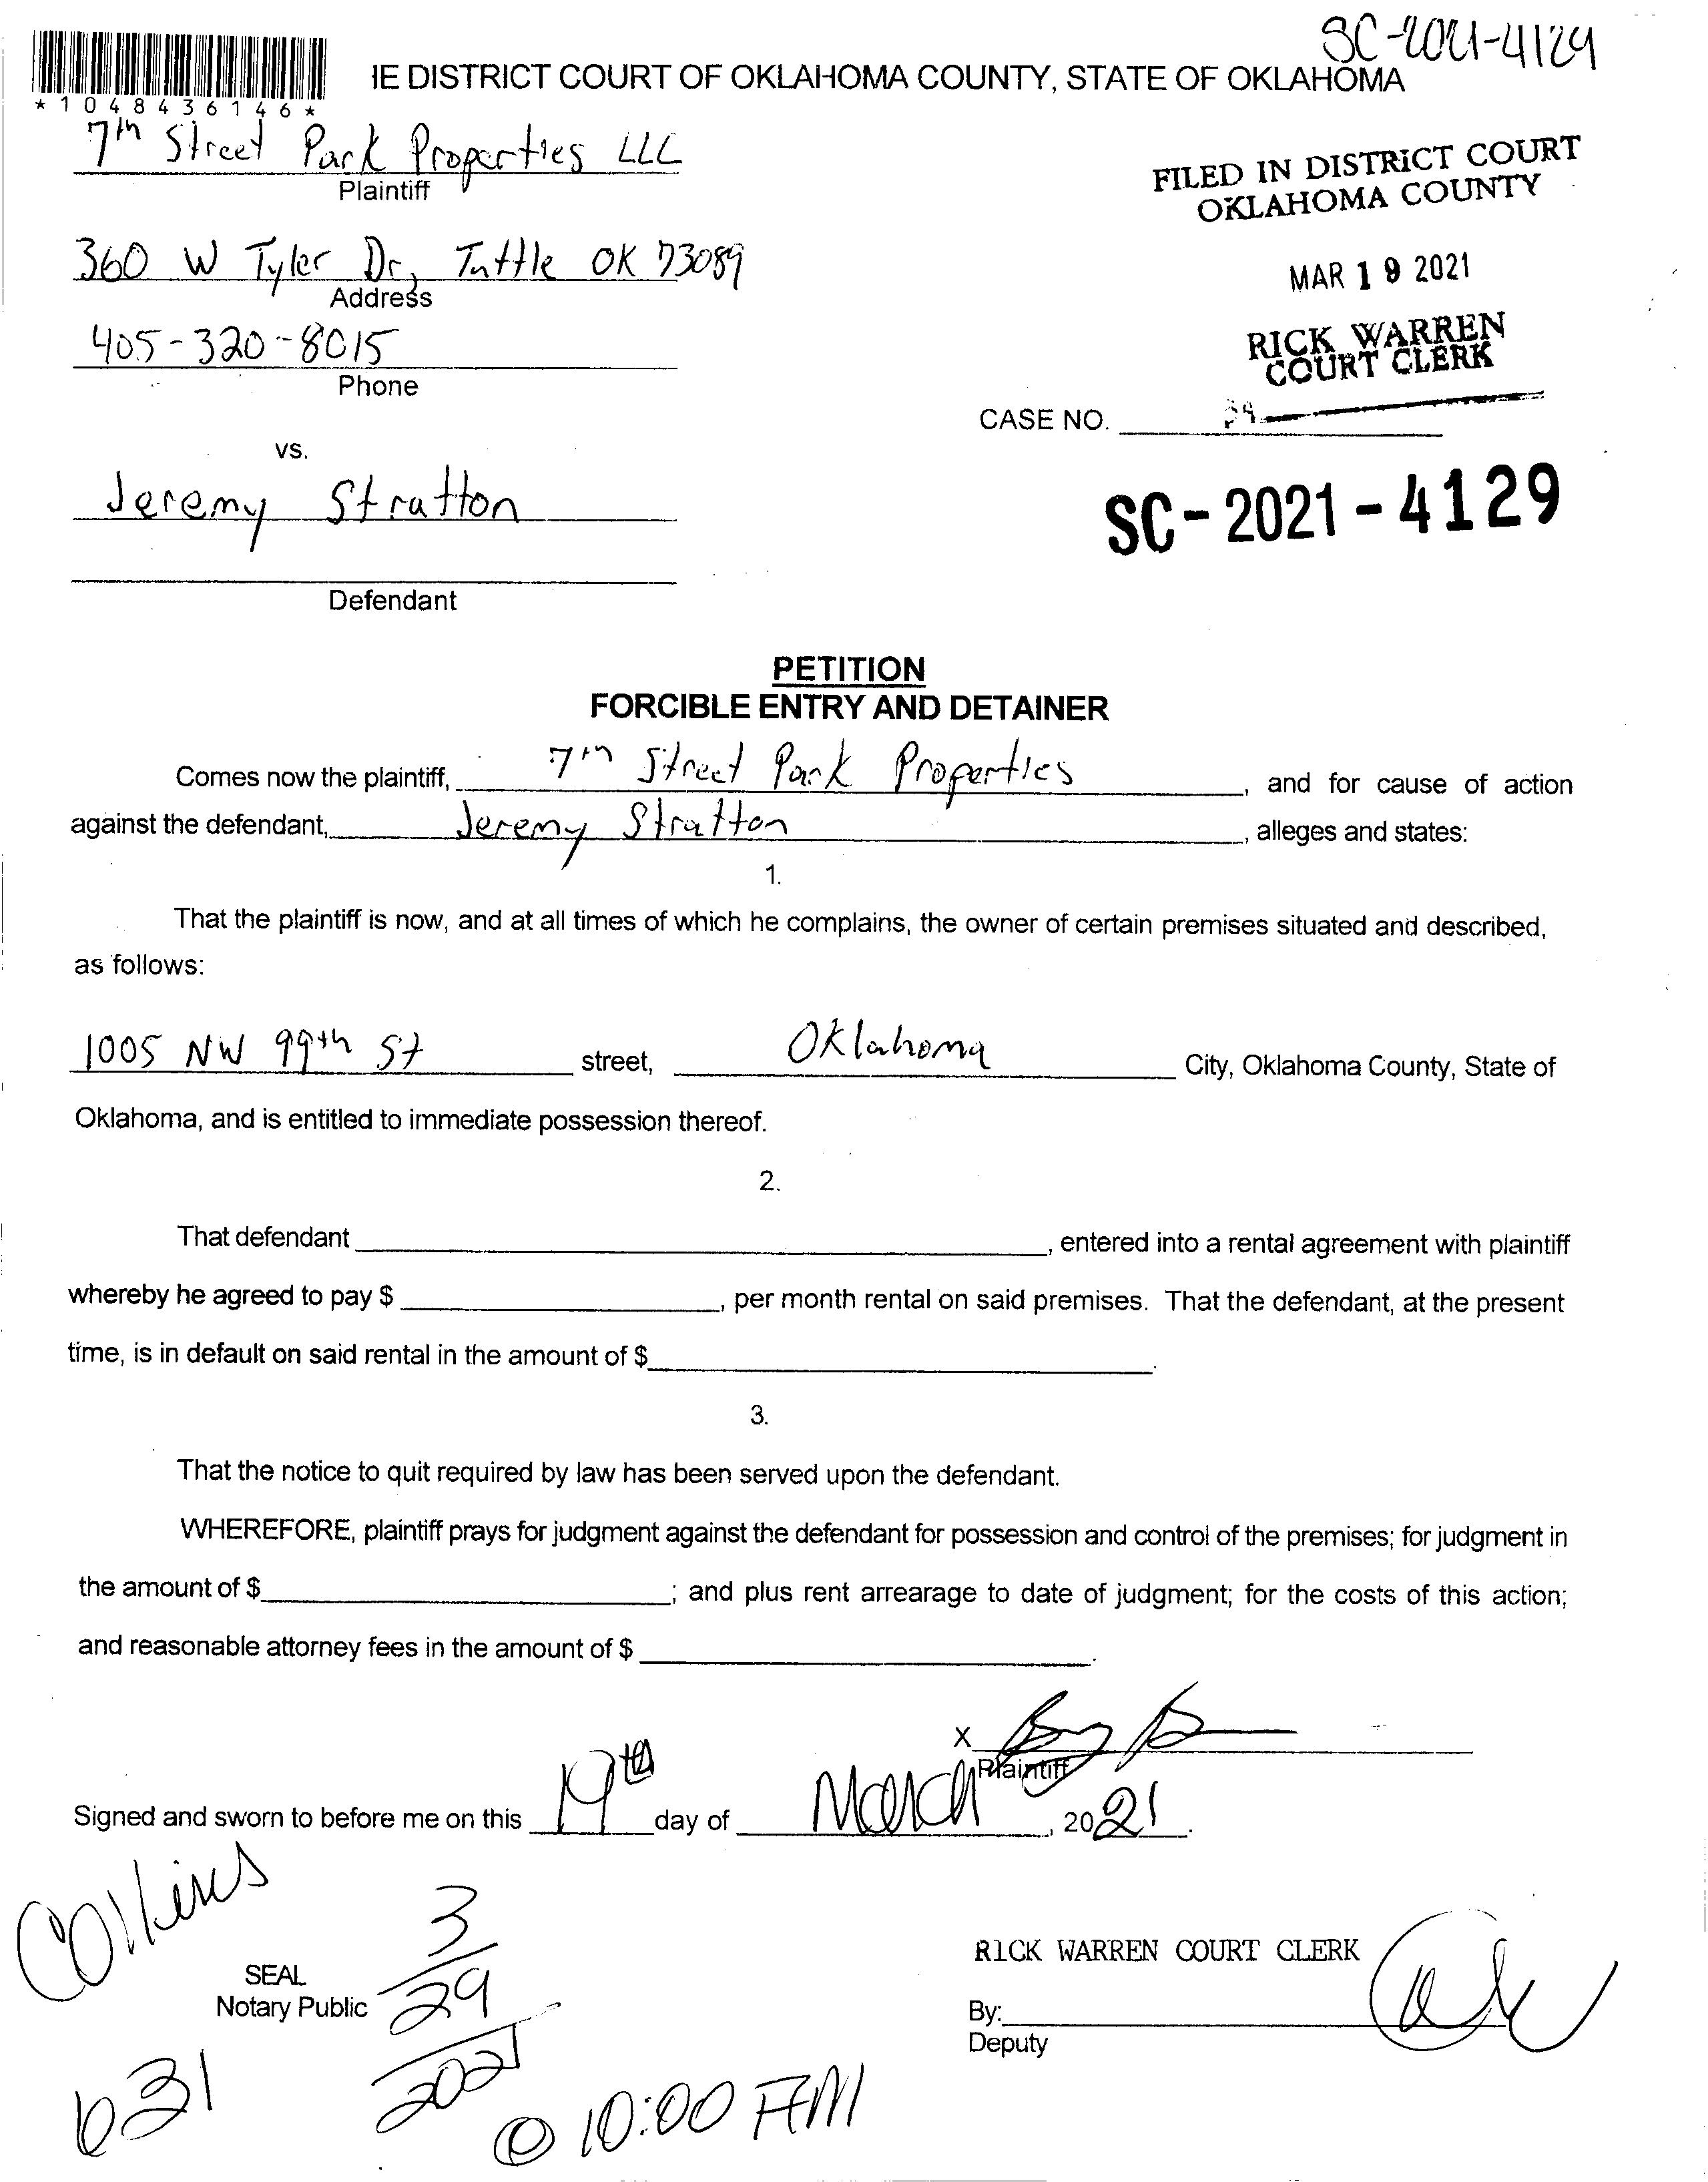 SC-2021-4129
IE DISTRICT COURT OF OKLAHOMA COUNTY, STATE OF OKLAHOMA
*1048436146*
7th Street Park Properties LLC
Plaintiff
FILED IN DISTRICT COURT
OKLAHOMA COUNTY
360 W Tyler Dr, Tuttle OK 73089
Address
MAR 19 2021
405-320-8015
Phone
RICK WARREN
COURT CLERK
CASE NO.
vs.
Jeremy Stratton
SC-2021-4129
Defendant
PETITION
FORCIBLE ENTRY AND DETAINER
Comes now the plaintiff, 7th Street Park Properties, and for cause of action
against the defendant, Jeremy Stratton, alleges and states:
1.
That the plaintiff is now, and at all times of which he complains, the owner of certain premises situated and described,
as follows:
1005 NW 99th St street, Oklahoma City, Oklahoma County, State of
Oklahoma, and is entitled to immediate possession thereof.
2.
That defendant , entered into a rental agreement with plaintiff
whereby he agreed to pay $ , per month rental on said premises. That the defendant, at the present
time, is in default on said rental in the amount of $ .
3.
That the notice to quit required by law has been served upon the defendant.
WHEREFORE, plaintiff prays for judgment against the defendant for possession and control of the premises; for judgment in
the amount of $ ; and plus rent arrearage to date of judgment; for the costs of this action;
and reasonable attorney fees in the amount of $ .
X
Plaintiff
Signed and sworn to before me on this 19th day of March, 2021.
Collins
3
29
2021
SEAL
Notary Public
RICK WARREN COURT CLERK
By:
Deputy
631
@ 10:00 AM